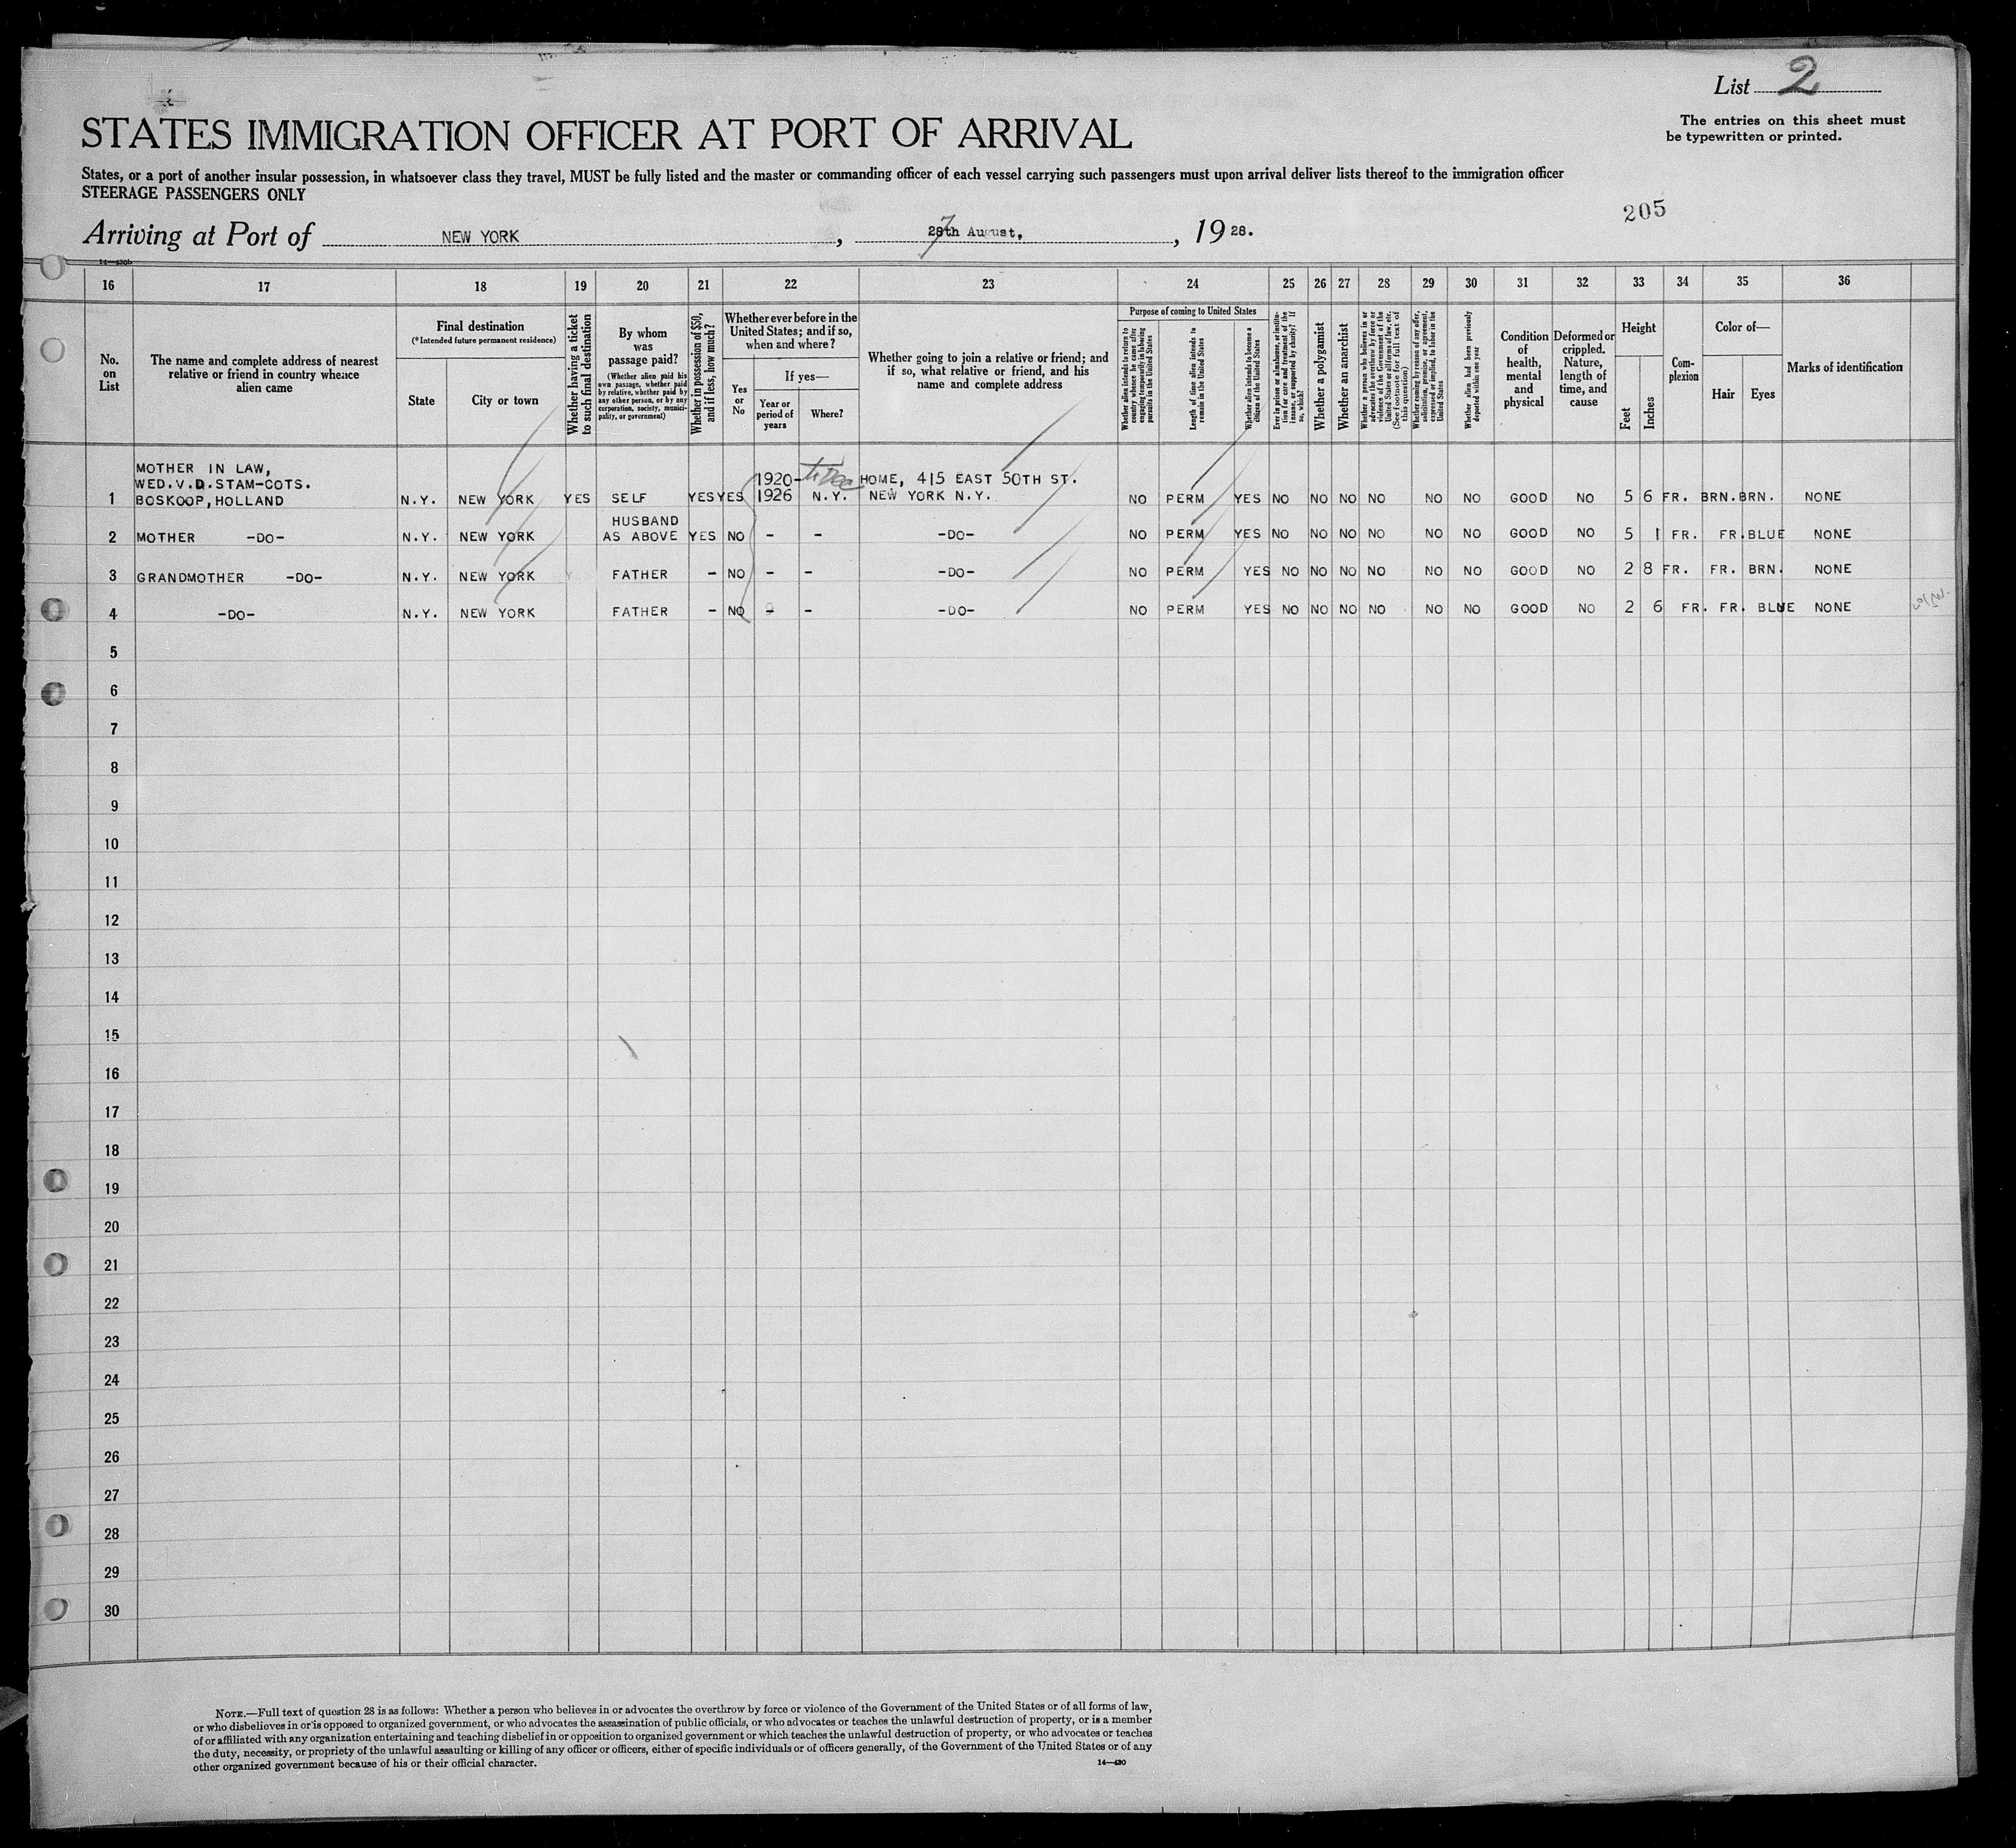 List 2
The entries on this sheet must
be typewritten or printed.
STATES IMMIGRATION OFFICER AT PORT OF ARRIVAL
States, or a port of another insular possession, in whatsoever class they travel, MUST be fully listed and the master or commanding officer of each vessel carrying such passengers must upon arrival deliver lists thereof to the immigration officer
STEERAGE PASSENGERS ONLY
205
Arriving at Port of NEW YORK, 28th August, 1928.
7
14—430b
16 17 18 19 20 21 22 23 24 25 26 27 28 29 30 31 32 33 34 35 36
No.
on
List
The name and complete address of nearest
relative or friend in country whence
alien came
Final destination
(*Intended future permanent residence)
State
City or town
Whether having a ticket
to such final destination
By whom
was
passage paid?
(Whether alien paid his
own passage, whether paid
by relative, whether paid by
any other person, or by any
corporation, society, munici-
pality, or government)
Whether in possession of $50,
and if less, how much?
Whether ever before in the
United States; and if so,
when and where?
Yes
or
No
If yes—
Year or
period of
years
Where?
Whether going to join a relative or friend; and
if so, what relative or friend, and his
name and complete address
Purpose of coming to United States
Whether alien intends to return to
country whence he came after
engaging temporarily in laboring
pursuits in the United States
Length of time alien intends to
remain in the United States
Whether alien intends to become a
citizen of the United States
Ever in prison or almshouse, or institu-
tion for care and treatment of the
insane, or supported by charity? If
so, which?
Whether a polygamist
Whether an anarchist
Whether a person who believes in or
advocates the overthrow by force or
violence of the Government of the
United States or all forms of law, etc.
(See footnote for full text of
this question)
Whether coming by reason of any offer,
solicitation, promise, or agreement,
expressed or implied, to labor in the
United States
Whether alien had been previously
deported within one year
Condition
of
health,
mental
and
physical
Deformed or
crippled.
Nature,
length of
time, and
cause
Height
Feet
Inches
Com-
plexion
Color of—
Hair
Eyes
Marks of identification
MOTHER IN LAW,
WED.V.D.STAM-COTS. 1920- HOME, 415 EAST 50TH ST.
1 BOSKOOP,HOLLAND N.Y. NEW YORK YES SELF YES YES 1926 N.Y. NEW YORK N.Y. NO PERM YES NO NO NO NO NO NO GOOD NO 5 6 FR. BRN. BRN. NONE
HUSBAND
2 MOTHER -DO- N.Y. NEW YORK AS ABOVE YES NO - - -DO- NO PERM YES NO NO NO NO NO NO GOOD NO 5 1 FR. FR. BLUE NONE
3 GRANDMOTHER -DO- N.Y. NEW YORK FATHER - NO - - -DO- NO PERM YES NO NO NO NO NO NO GOOD NO 2 8 FR. FR. BRN. NONE
4 -DO- N.Y. NEW YORK FATHER - NO - - -DO- NO PERM YES NO NO NO NO NO NO GOOD NO 2 6 FR. FR. BLUE NONE
5
6
7
8
9
10
11
12
13
14
15
16
17
18
19
20
21
22
23
24
25
26
27
28
29
30
NOTE.—Full text of question 28 is as follows: Whether a person who believes in or advocates the overthrow by force or violence of the Government of the United States or of all forms of law,
or who disbelieves in or is opposed to organized government, or who advocates the assassination of public officials, or who advocates or teaches the unlawful destruction of property, or is a member
of or affiliated with any organization entertaining and teaching disbelief in or opposition to organized government or which teaches the unlawful destruction of property, or who advocates or teaches
the duty, necessity, or propriety of the unlawful assaulting or killing of any officer or officers, either of specific individuals or of officers generally, of the Government of the United States or of any
other organized government because of his or their official character.
14—430